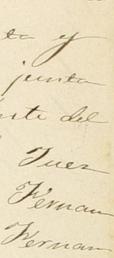 ta y
junta
nte del
Juez
Fernan
Fernan